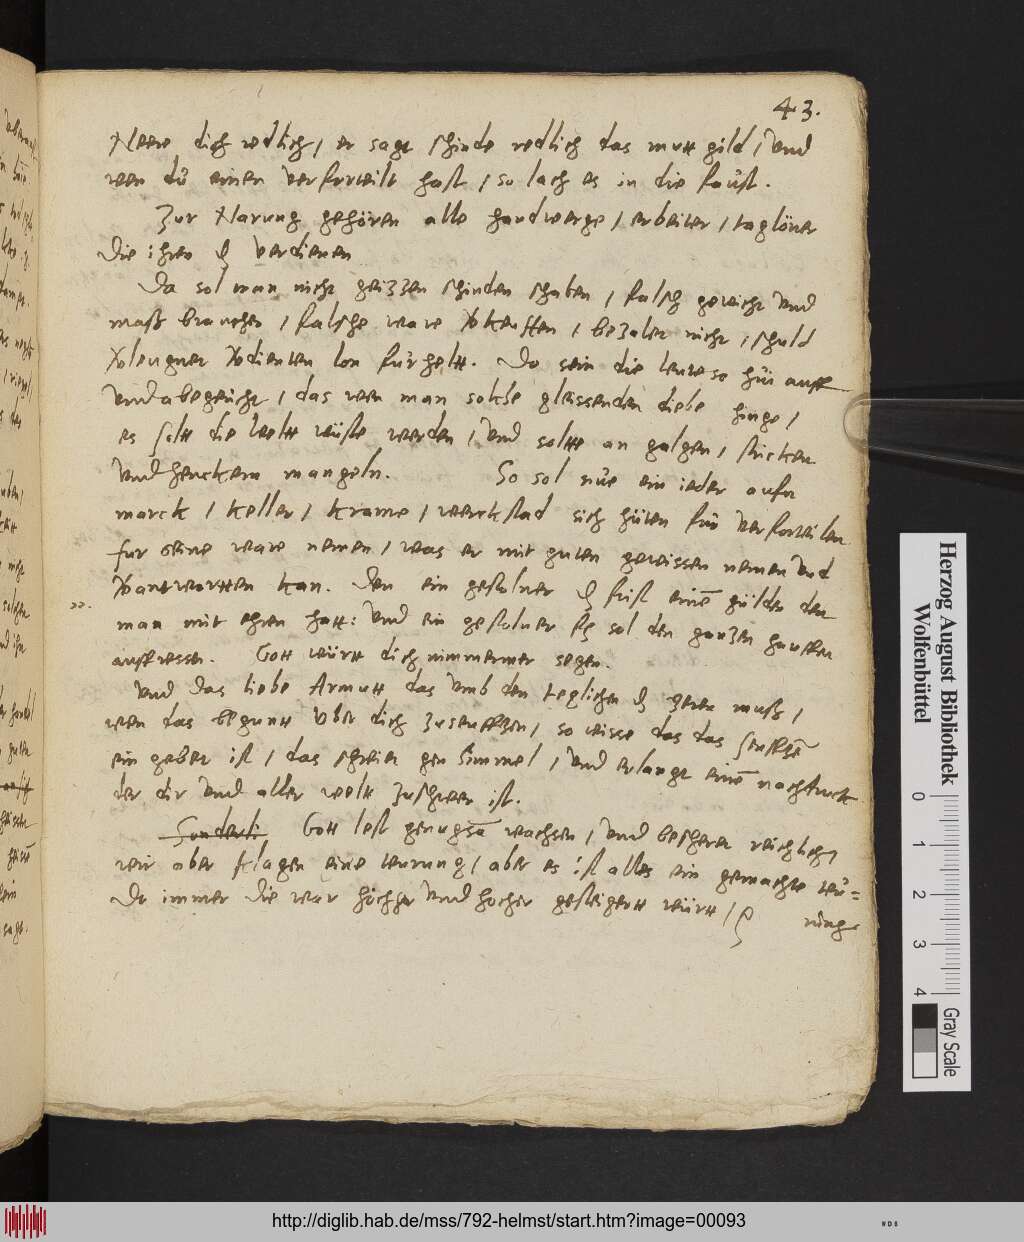 43.
Neere dich redlich, er sagt schinde redlich das mutt gild, Vnd
wen du einen verforteilt hast, so lach es in die faust.
Zur Narung gehören alle handwerge, erbeiter, taglöner
die ihren ₰ verdienen
Da sol man nicht geizzen schinden schaben, falsch gewicht vnd
maß brauchen, falsche ware verkeuffen, bezalet nicht, schuld
verleugnet verdienten lon fürhelt. Do sein die leute so hin auff
Vnd abegericht, das wen man solche gleissenden diebe hinge,
es solt die welt wüste werden, Vnd solte an galgen, stricken
Vnd henckern mangeln. So sol nue ein ieder aufm
marck, keller, krame, werckstad sich hüten für verforteilen
fur seine ware nemen, was er mit guten gewissen nemen Vnd
verantwortten kan. Den ein gestolner ₰ frist einē gülden den
man mit ehren hatt: Vnd ein gestolner fl sol den ganzen hauffen
auffressen. Gott württ dich nimmermer segen.
Vnd das liebe Armutt das vmb den teglichen ₰ zeren muß,
wen das begunt vber dich zuseufftzen, so wisse das das seufftzē
ein geber ist, das schreiet gen himmel, Vnd erlangt einē nachdruck
der dir Vnd aller welt zuschwer ist.
Sonderli: Gott lest genugsā wachsen, Vnd bescheret reichlich,
wir aber klagen eine teurung, aber es ist alles ein gemachte teu=
Do immer die war höcher Vnd hocher gesteigert württ, rung
Herzog August Bibliothek
Wolfenbüttel
0 1 2 3 4
Gray Scale
http://diglib.hab.de/mss/792-helmst/start.htm?image=00093